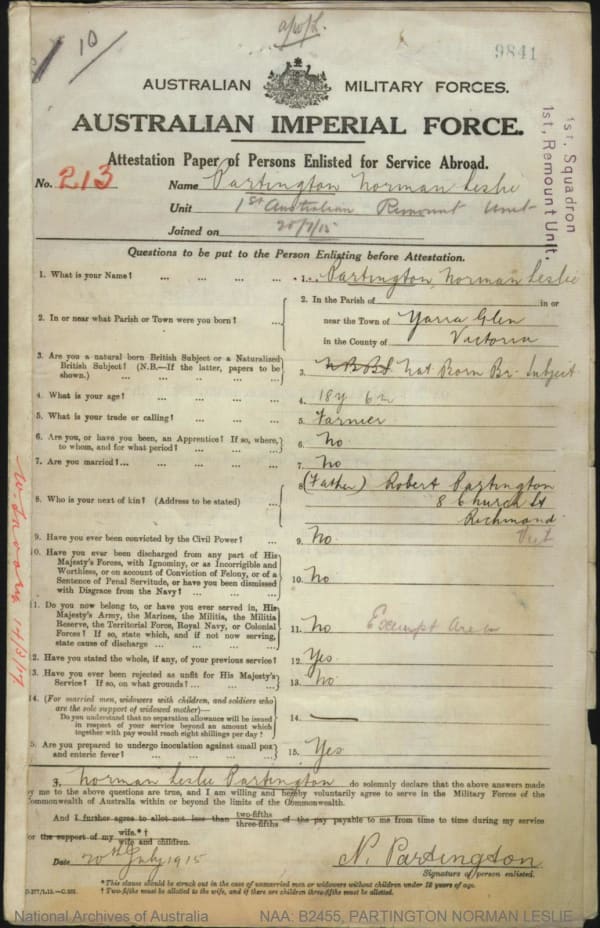 10
apoph
9841
AUSTRALIAN MILITARY FORCES.
AUSTRALIAN IMPERIAL FORCE.
Attestation Paper of Persons Enlisted for Service Abroad.
1st, Squadron
1st, Remount Unit.
No. 213 Name Partington Norman Leslie
Unit 1st Australian Remount Unit
Joined on 20/7/15
Questions to be put to the Person Enlisting before Attestation.
1. What is your Name? ... ... ... ... 1. Partington, Norman Leslie
2. In or near what Parish or Town were you born? ... 2. In the Parish of in or
near the Town of Yarra Glen
in the County of Victoria
3. Are you a natural born British Subject or a Naturalized
British Subject? (N.B.—If the latter, papers to be
shown.) ... ... ... ... 3. N B BS Nat Born Br. Subject
4. What is your age? ... ... ... ... 4. 18y 6m
5. What is your trade or calling? ... ... ... 5. Farrier
6. Are you, or have you been, an Apprentice? If so, where,
to whom, and for what period? ... ... ... 6. No
7. Are you married?... ... ... ... ... 7. No
8. Who is your next of kin? (Address to be stated) ... 8. (Father) Robert Partington
8 Church St
Richmond
Vict
9. Have you ever been convicted by the Civil Power? ... 9. No.
10. Have you ever been discharged from any part of His
Majesty's Forces, with Ignominy, or as Incorrigible and
Worthless, or on account of Conviction of Felony, or of a
Sentence of Penal Servitude, or have you been dismissed
with Disgrace from the Navy? ... ... ... 10. No
11. Do you now belong to, or have you ever served in, His
Majesty's Army, the Marines, the Militia, the Militia
Reserve, the Territorial Force, Royal Navy, or Colonial
Forces? If so, state which, and if not now serving,
state cause of discharge ... ... ... ... 11. No Exempt Area
2. Have you stated the whole, if any, of your previous service? 12. Yes.
3. Have you ever been rejected as unfit for His Majesty's
Service? If so, on what grounds? ... ... ... 13. No.
14. (For married men, widowers with children, and soldiers who
are the sole support of widowed mother)—
Do you understand that no separation allowance will be issued
in respect of your service beyond an amount which
together with pay would reach eight shillings per day? 14.
5. Are you prepared to undergo inoculation against small pox
and enteric fever? ... ... ... ... 15. Yes
14/3/17
I, Norman Leslie Partington do solemnly declare that the above answers made
by me to the above questions are true, and I am willing and hereby voluntarily agree to serve in the Military Forces of the
Commonwealth of Australia within or beyond the limits of the Commonwealth.
And I further agree to allot not less than two-fifths three-fifths of the pay payable to me from time to time during my service
for the support of my wife.*† wife and children.
Date 20th July 1915 N. Partington
Signature of person enlisted.
*This clause should be struck out in the case of unmarried men or widowers without children under 18 years of age.
† Two-fifths must be allotted to the wife, and if there are children three-fifths must be allotted.
National Archives of Australia NAA: B2455, PARTINGTON NORMAN LESLIE